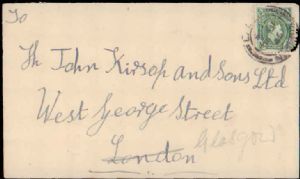 To
Th John Kirsop and Sons Ltd
West George Street
London Glasgow